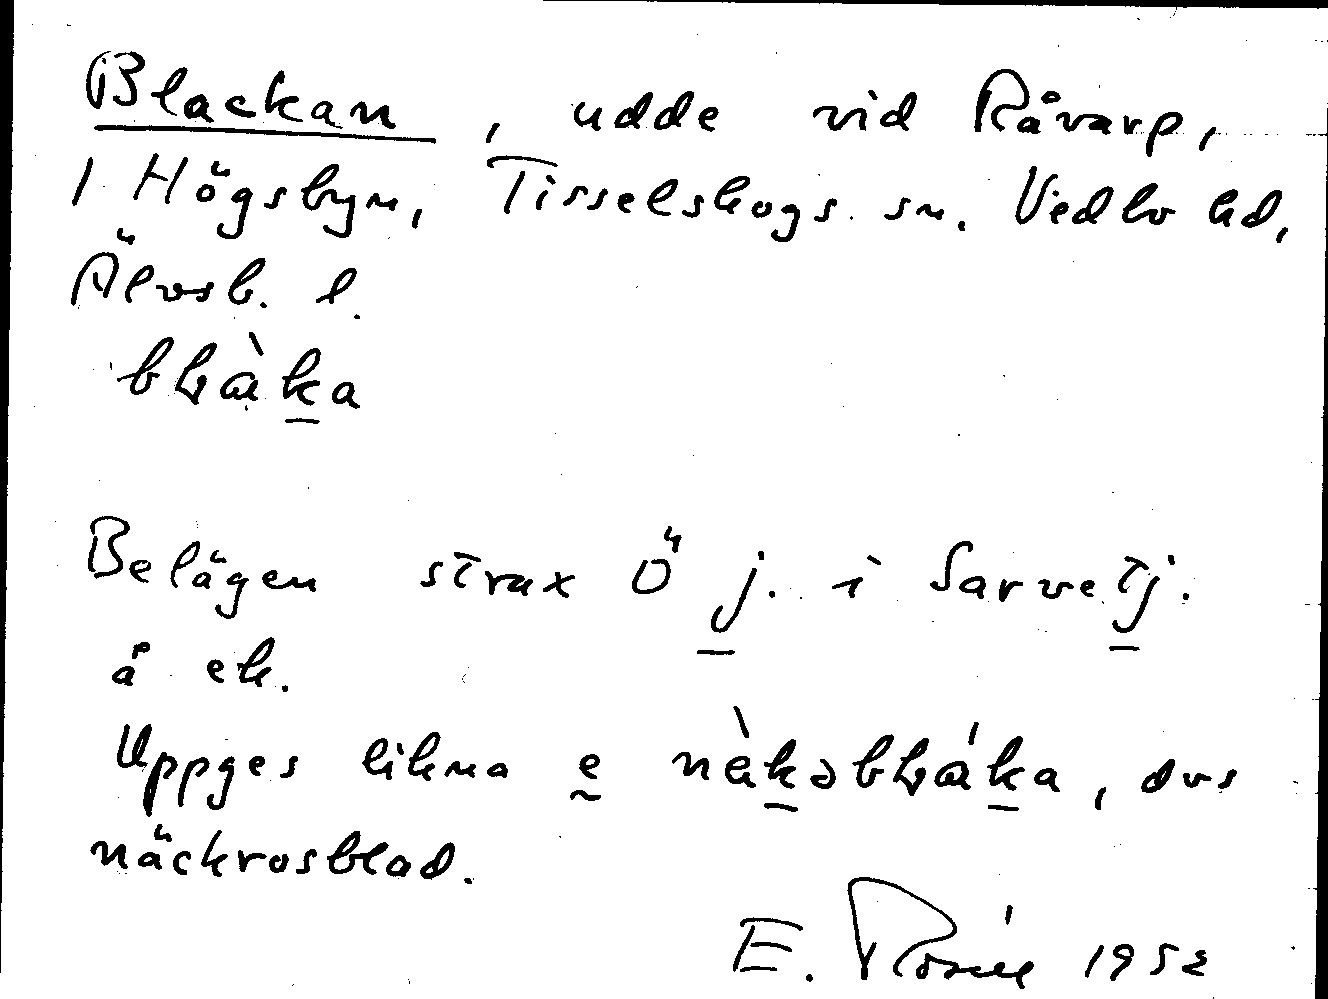 Blackan, udde vid Råvarp,
1 Högsbyn, Tisselskogs sn. Vedbo hd,
Älvsb. l.
bḷàka
Belägen strax Ö j. i Sarvetj.
å ek.
Uppges likna e nàkəbḷáka, dvs
näckrosblad.
E. Rosén 1952